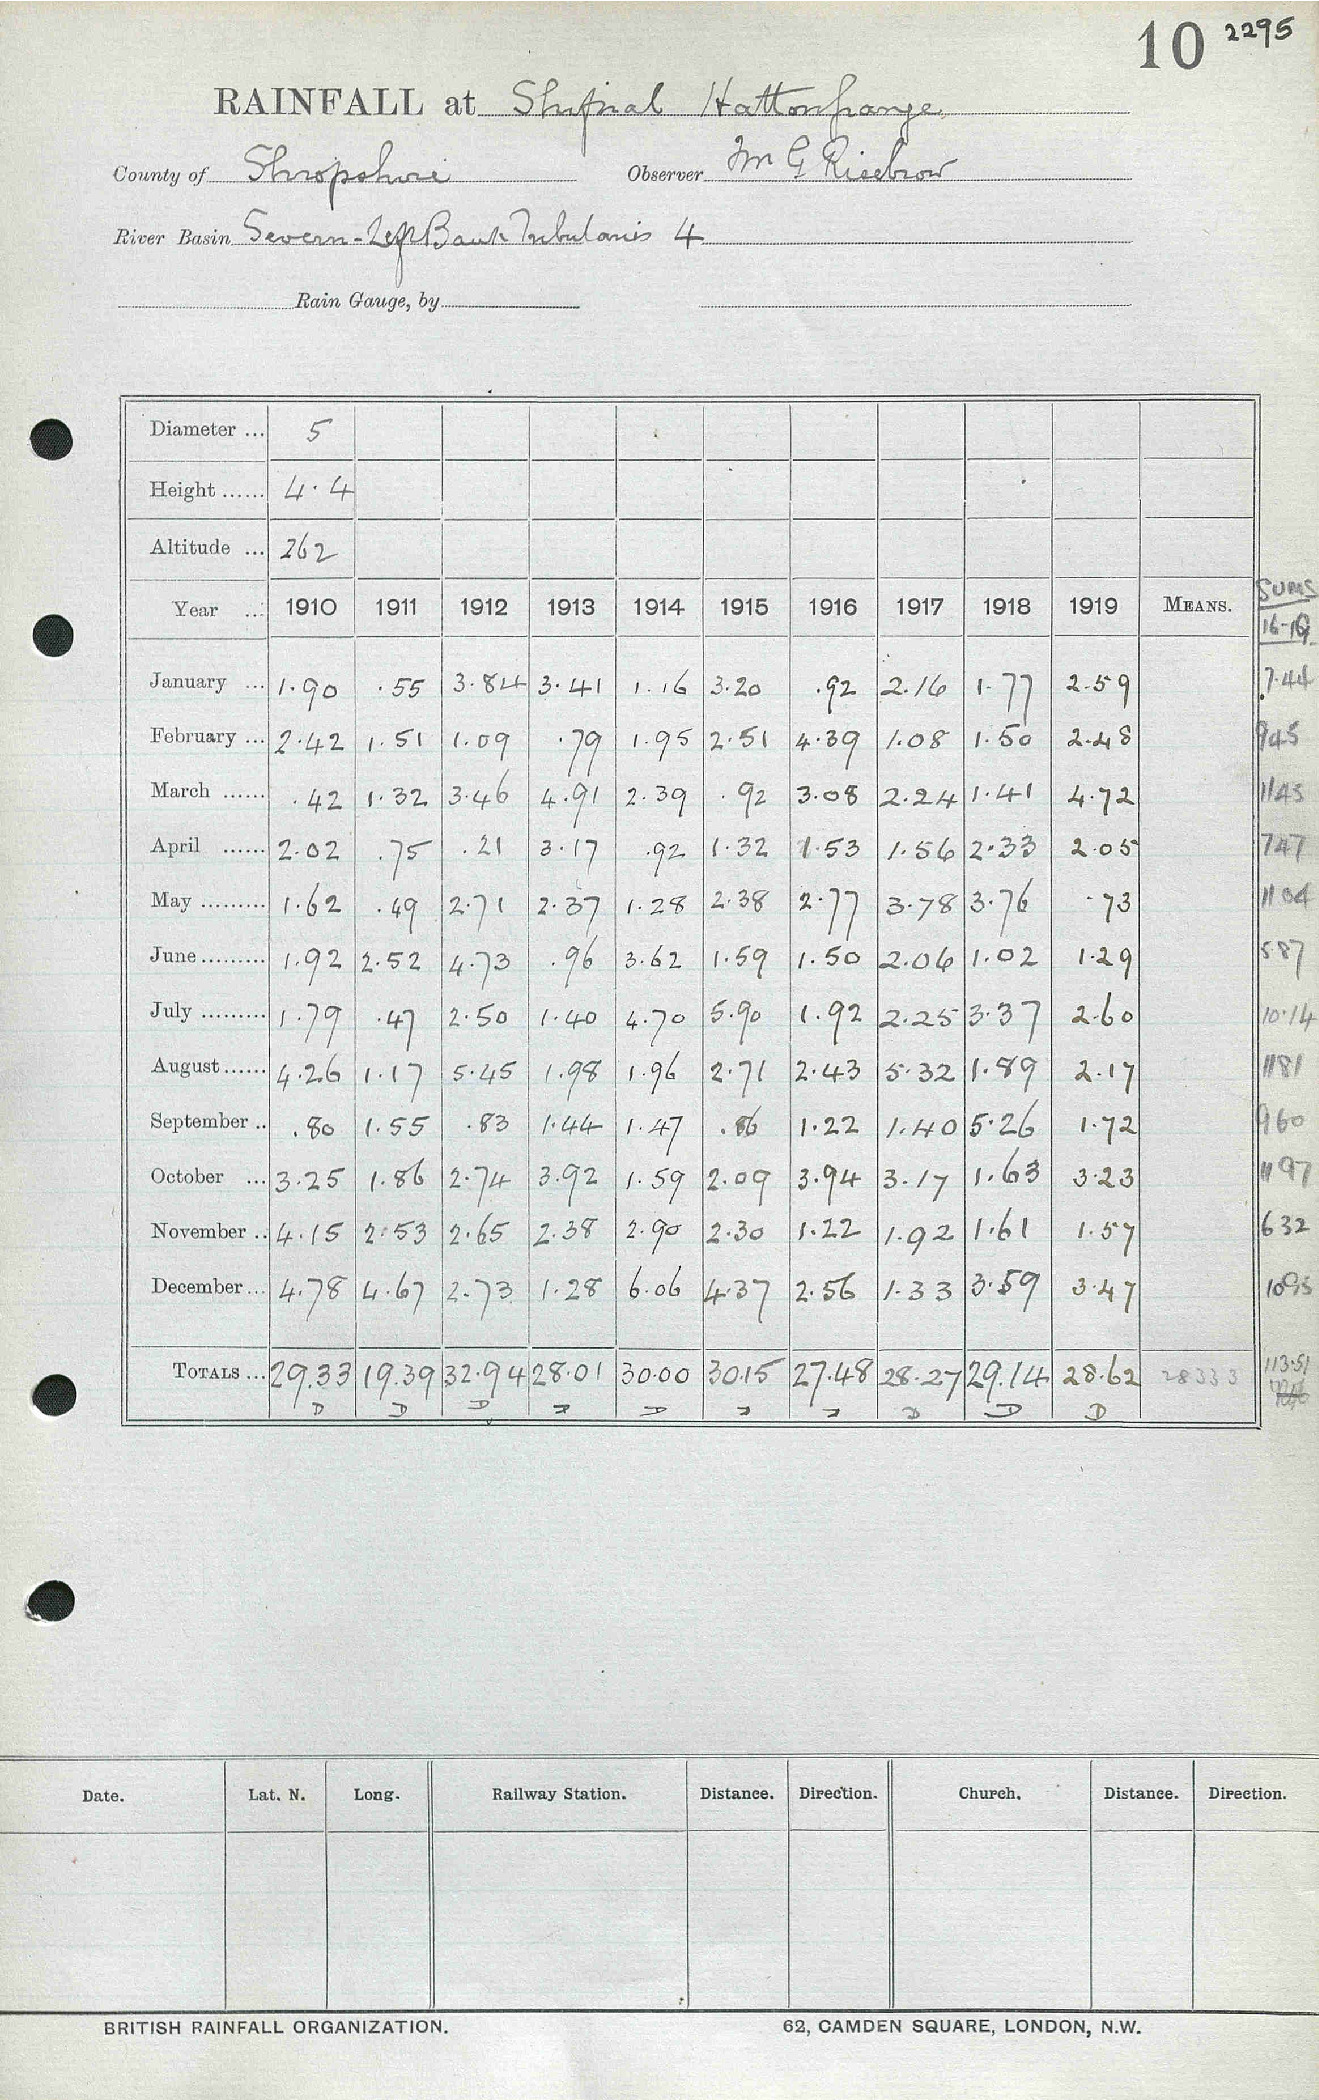 10 2295
RAINFALL at Shifnal Hattongrange
County of Shropshire Observer Mr G Risebrow
River Basin Severn - Left Bank Tributaries 4
Rain Gauge, by
Diameter ... 5
Height ...... 4.4
Altitude ... 262
SUMS
Year ... 1910 1911 1912 1913 1914 1915 1916 1917 1918 1919 MEANS. 16-19
January ... 1.90 .55 3.84 3.41 1.16 3.20 .92 2.16 1.77 2.59 7.44
February ... 2.42 1.51 1.09 .79 1.95 2.51 4.39 1.08 1.50 2.48 945
March ...... .42 1.32 3.46 4.91 2.39 .92 3.08 2.24 1.41 4.72 1145
April ...... 2.02 .75 .21 3.17 .92 1.32 1.53 1.56 2.33 2.05 747
May ......... 1.62 .49 2.71 2.37 1.28 2.38 2.77 3.78 3.76 .73 1104
June ......... 1.92 2.52 4.73 .96 3.62 1.59 1.50 2.06 1.02 1.29 587
July ......... 1.79 .47 2.50 1.40 4.70 5.90 1.92 2.25 3.37 2.60 10.14
August ...... 4.26 1.17 5.45 1.98 1.96 2.71 2.43 5.32 1.89 2.17 1181
September .. .80 1.55 .83 1.44 1.47 .86 1.22 1.40 5.26 1.72 960
October ... 3.25 1.86 2.74 3.92 1.59 2.09 3.94 3.17 1.63 3.23 1197
November .. 4.15 2.53 2.65 2.38 2.90 2.30 1.22 1.92 1.61 1.57 632
December ... 4.78 4.67 2.73 1.28 6.06 4.37 2.56 1.33 3.59 3.47 1095
TOTALS ... 29.33 19.39 32.94 28.01 30.00 30.15 27.48 28.27 29.14 28.62 28333 113.51
D D D D D D D D D D
Date. Lat. N. Long. Railway Station. Distance. Direction. Church. Distance. Direction.
BRITISH RAINFALL ORGANIZATION. 62, CAMDEN SQUARE, LONDON, N.W.